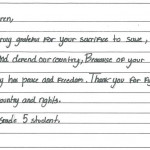 ren,
ry grateful for your sacrifice to save,
nd defend our country, Because of your
y has peace and freedom. Thank you for fig
ountry and rights.
Grade 5 student